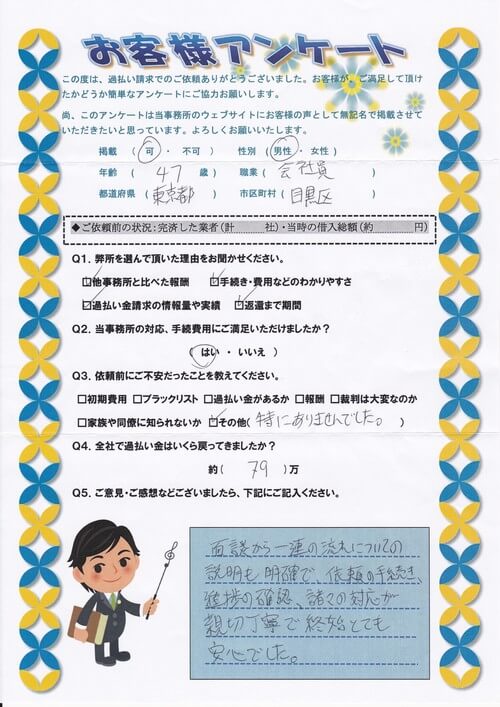 お客様アンケート
この度は、過払い請求でのご依頼ありがとうございました。お客様が、ご満足して頂け
たかどうか簡単なアンケートにご協力お願いします。
尚、このアンケートは当事務所のウェブサイトにお客様の声として無記名で掲載させて
いただきたいと思っています。よろしくお願いいたします。
掲載 ( 可 ・ 不可 ) 性別 ( 男性 ・ 女性 )
年齢 ( 47 歳 ) 職業 ( 会社員 )
都道府県 ( 東京都 ) 市区町村 ( 目黒区 )
◆ご依頼前の状況:完済した業者(計 社)・当時の借入総額(約 円)
Q1. 弊所を選んで頂いた理由をお聞かせください。
☑他事務所と比べた報酬 ☑手続き・費用などのわかりやすさ
☑過払い金請求の情報量や実績 ☑返還まで期間
Q2. 当事務所の対応、手続費用にご満足いただけましたか?
( はい ・ いいえ )
Q3. 依頼前にご不安だったことを教えてください。
□初期費用 □ブラックリスト □過払い金があるか □報酬 □裁判は大変なのか
□家族や同僚に知られないか ☑その他( 特にありませんでした。 )
Q4. 全社で過払い金はいくら戻ってきましたか?
約( 79 )万
Q5. ご意見・ご感想などございましたら、下記にご記入ください。
面談から一連の流れについての
説明も明確で、依頼の手続き、
進捗の確認、諸々の対応が
親切丁寧で終始とても
安心でした。